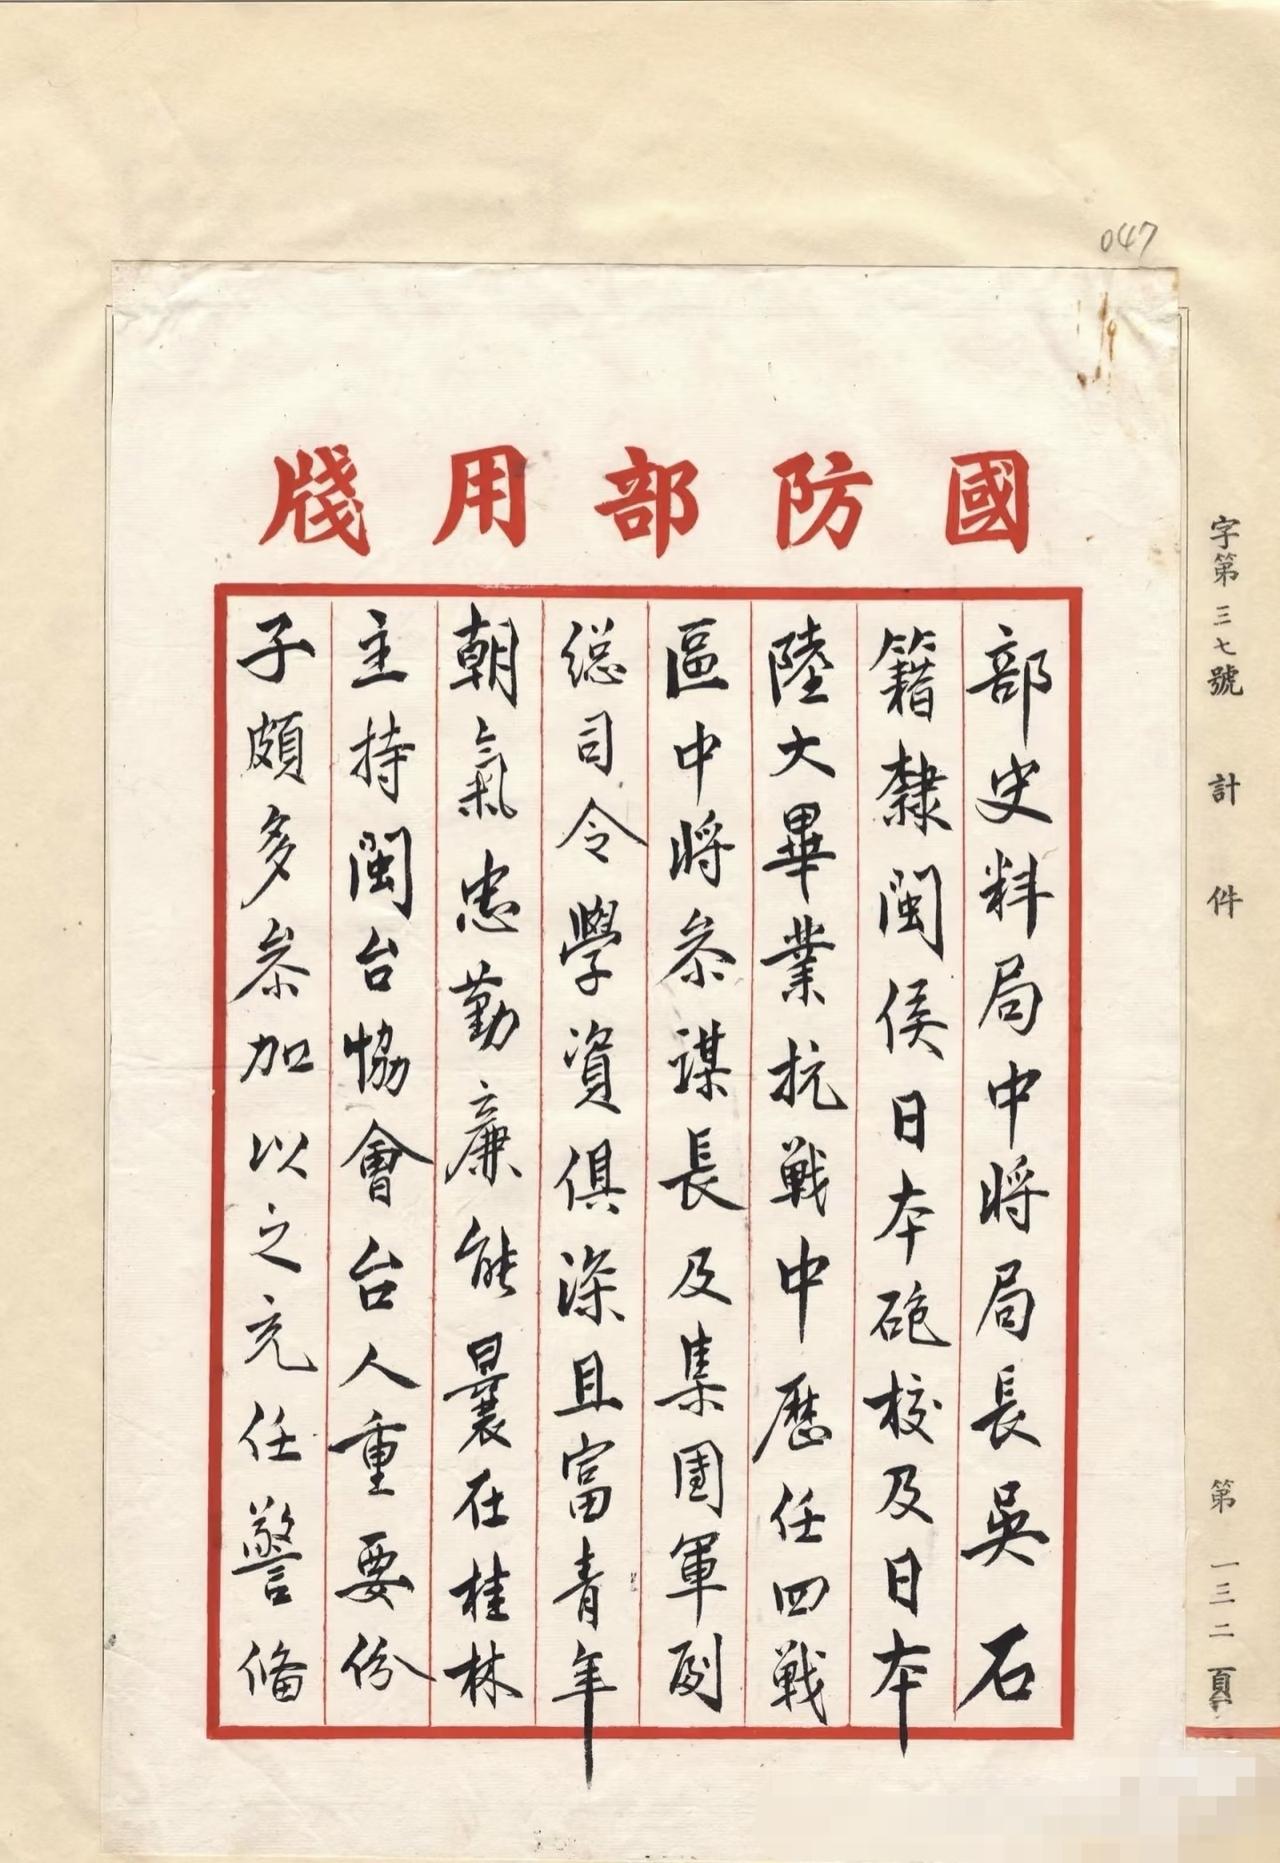 047
國防部用牋
部史料局中將局長吳石
籍隸閩侯日本砲校及日本
陸大畢業抗戰中歷任四戰
區中將叅謀長及集团軍副
総司令學資俱深且富青年
朝氣忠勤廉能曩在桂林
主持閩台恊會台人重要份
子頗多叅加以之充任警備
字第三七號 計 件
第一三二頁